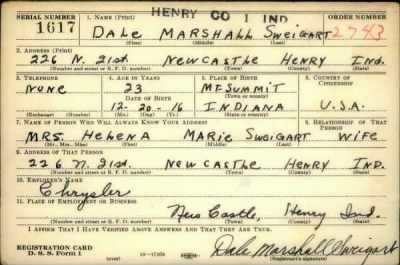 HENRY CO 1 IND
SERIAL NUMBER 1. NAME (Print) ORDER NUMBER
1617 DALE MARSHALL SWEIGART 2743
(First) (Middle) (Last)
2. ADDRESS (Print)
226 N. 21ST. NEWCASTLE HENRY IND.
(Number and street or R. F. D. number) (Town) (County) (State)
3. TELEPHONE 4. AGE IN YEARS 5. PLACE OF BIRTH 6. COUNTRY OF CITIZENSHIP
NONE 23 MT. SUMMIT
(Town or county)
DATE OF BIRTH
12-20-16 INDIANA U.S.A.
(Exchange) (Number) (Mo.) (Day) (Yr.) (State or country)
7. NAME OF PERSON WHO WILL ALWAYS KNOW YOUR ADDRESS 8. RELATIONSHIP OF THAT PERSON
MRS. HELENA MARIE SWEIGART WIFE
(Mr., Mrs., Miss) (First) (Middle) (Last)
9. ADDRESS OF THAT PERSON
226 N. 21st. NEW CASTLE HENRY IND.
(Number and street or R. F. D. number) (Town) (County) (State)
10. EMPLOYER'S NAME
Chrysler
11. PLACE OF EMPLOYMENT OR BUSINESS
New Castle, Henry Ind.
(Number and street or R. F. D. number) (Town) (County) (State)
I AFFIRM THAT I HAVE VERIFIED ABOVE ANSWERS AND THAT THEY ARE TRUE.
REGISTRATION CARD
D. S. S. Form 1
Dale Marshall Sweigart
(Registrant's signature)